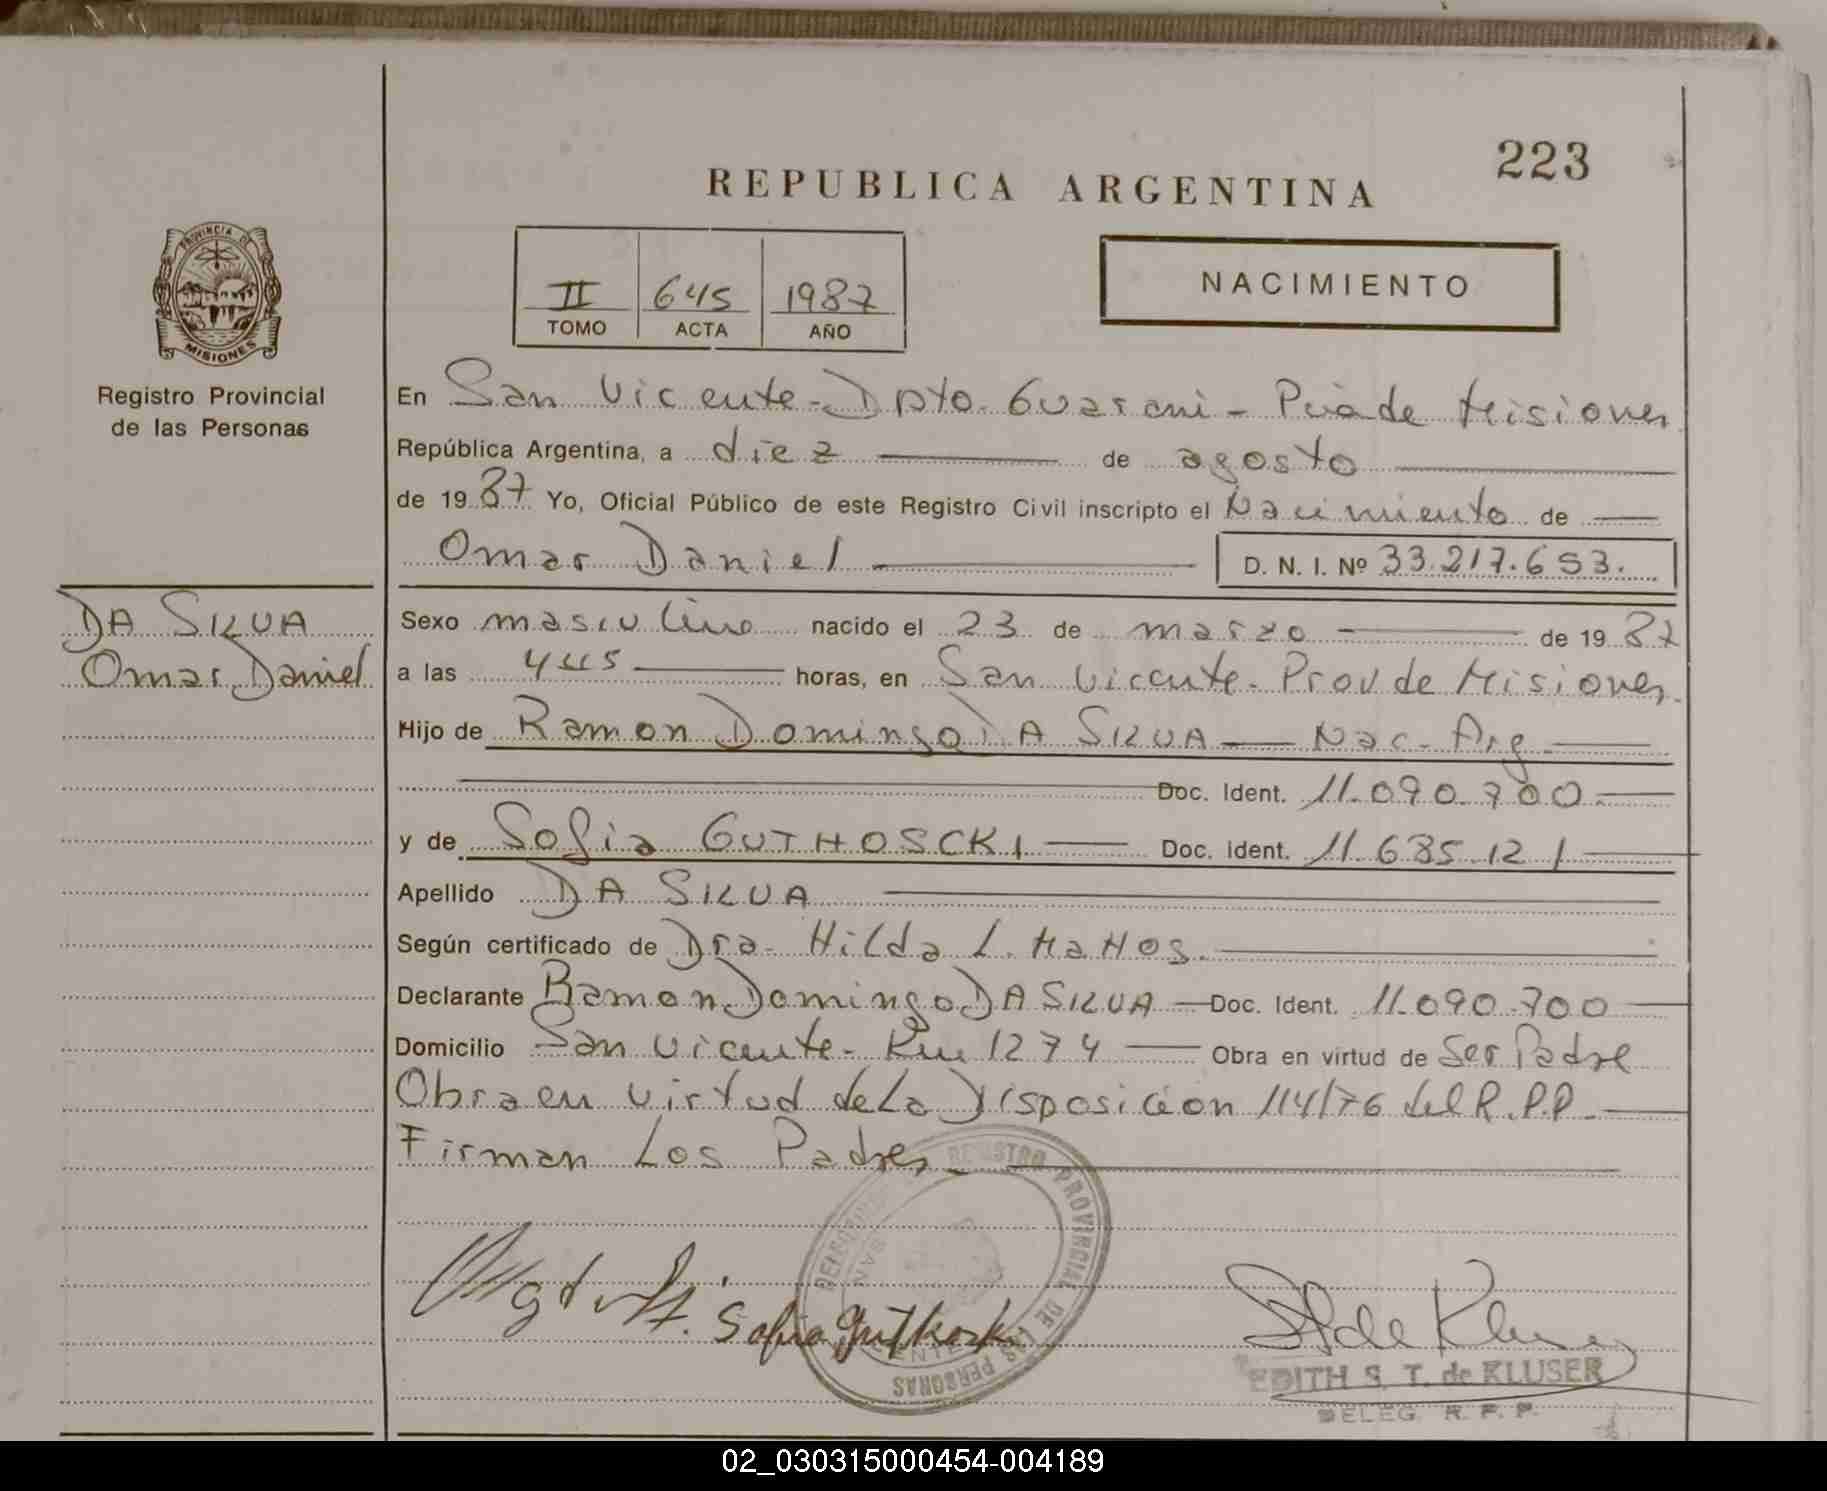 223
REPUBLICA ARGENTINA
PROVINCIA DE
MISIONES
Registro Provincial
de las Personas
II 645 1987
TOMO ACTA AÑO
NACIMIENTO
En San Vicente - Dpto. Guarani - Pcia de Misiones
República Argentina, a diez de agosto
de 1987 Yo, Oficial Público de este Registro Civil inscripto el Nacimiento de
Omar Daniel D. N. I. Nº 33.217.653.
DA SILVA
Omar Daniel
Sexo masculino nacido el 23 de marzo de 1987
a las 445 horas, en San Vicente - Prov de Misiones.
Hijo de Ramon Domingo DA SILVA — Nac. Arg
Doc. Ident. 11.090.700
y de Sofia GUTHOSCKI Doc. Ident. 11.685.121
Apellido DA SILVA
Según certificado de Dra. Hilda L.
Declarante Ramon Domingo DA SILVA — Doc. Ident. 11.090.700
Domicilio San Vicente - Km 1274 — Obra en virtud de Ser Padre
Obra en virtud de La Disposición 114/76 del R.P.P.
Firman Los Padres
REGISTRO PROVINCIAL DE LAS PERSONAS
SAN
Sofia Guthoski
EDITH S. T. de KLUSER
DELEG. R. P. P.
02_030315000454-004189